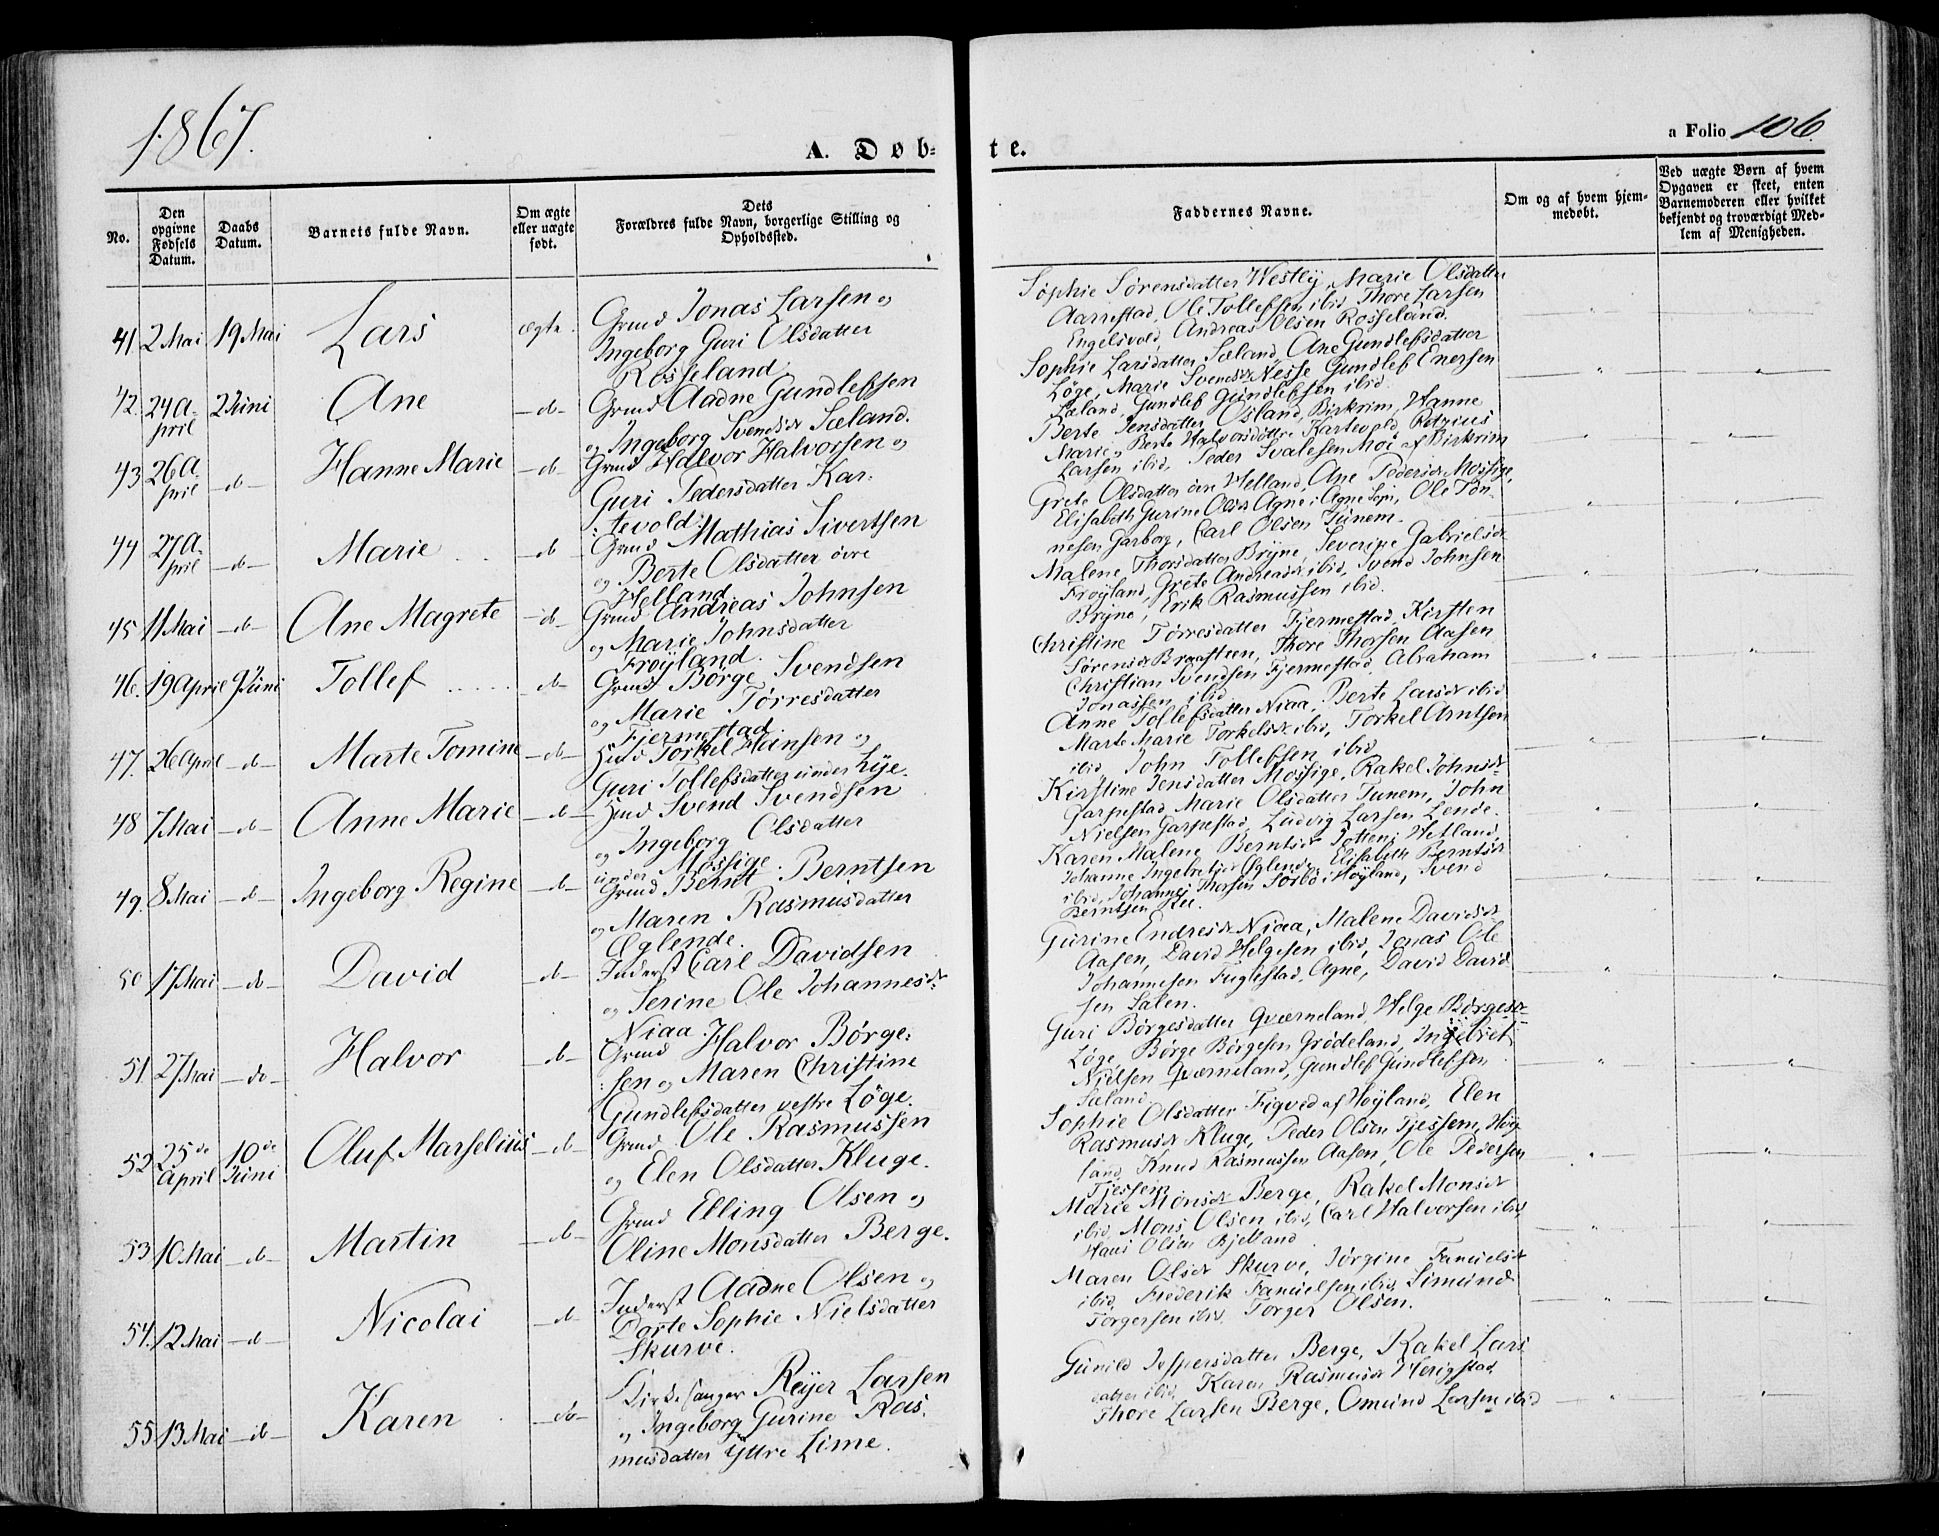 1867.
A. Døb=
te.
a Folio 106.
No.
Den opgivne Fødsels Datum.
Daabs Datum.
Barnets fulde Navn.
Om ægte eller uægte født.
Dets Forældres fulde Navn, borgerlige Stilling og Opholdssted.
Faddernes Navne.
Om og af hvem hjemmedøbt.
Ved uægte Børn af hvem Opgaven er skeet, enten Barnemoderen eller hvilket bekjendt og troværdigt Medlem af Menigheden.
41 2 Mai 19 Mai Lars ægte.
Grmd Jonas Larsen og
Ingeborg Guri Olsdatter
Rosseland.
Sophie Sørensdatter Westly, Marie Olsdatter
Aarrestad, Ole Tollefsen ibid, Thore Larsen
Engelsvold, Andreas Olsen Rosseland.
42. 24 April 2 Juni Ane do
Grmd Aadne Gundlefsen
og Ingeborg Svendsdr Sæland.
Sophie Larsdatter Sæland, Ane Gundlefsdatter
Løge, Marie Svendsdr Nesse, Gundlef Enersen
Sæland, Gundlef Gundlefsen ibid.
43 26 April do Hanne Marie do
Grmd Halvor Halvorsen og
Guri Pedersdatter Kar=
=tevold.
Berte Jensdatter Osland, Birkrim, Hanne
Marie og Berte Halvorsdøttre Kartevold, Petrius
Larsen ibid, Peder Svalesen Moi af Birkrim
44 27 April do Marie do
Grmd Mathias Sivertsen
og Berte Olsdatter øvre
Helland.
Grete Olsdatter øvre Helland, Ane Pedersdr Mossige,
Elisabeth Gurine Olsdr Agne i Agne Sogn, Ole Tøn=
nesen Garborg, Carl Olsen Tunem.
45 11 Mai do Ane Magrete do
Grmd Andreas Johnsen
og Marie Johnsdatter
Frøyland.
Malene Thorsdatter Bryne, Severine Gabrielsdr
Frøyland, Grete Andreasdr ibid, Svend Johnsen
Bryne, Erik Rasmussen ibid.
46. 19 April 9 Juni Tollef do
Grmd Børge Svendsen
og Marie Tørresdatter
Fjermestad
Christine Tørresdatter Fjermestad, Kirsten
Sørensdr Braastein, Thore Thorsen Aasen
Christian Svendsen Fjermestad, Abraham
Jonassen ibid
47. 26 April do Marte Tomine do
Hmd Torkel Hansen og
Guri Tollefsdatter under Lye.
Anne Tollefsdatter Niaa, Berte Larsdr ibid
Marte Marie Torkelsdr ibid, Torkel Arntsen
ibid John Tollefsen ibid
48 7 Mai do Anne Marie do
Hmd Svend Svendsen
og Ingeborg Olsdatter
under Mossige.
Kirstine Jensdatter Mossige, Rakel Johnsdr
Garpestad Marie Olsdatter Tunem, John
Nielsen Garpestad, Ludvig Larsen Lende.
49. 8 Mai do Ingeborg Regine do
Grmd Bernt Berntsen
og Maren Rasmusdatter
Øglende.
Karen Malene Berntsdr Totten i Hetland,
Johanne Ingebretsdr Øglende Elisabeth Berntsdr
ibid, Johannes Thorsen Sørbø i Høyland, Svend
Berntsen Ree.
50 17 Mai do David do
Inderst Carl Davidsen
og Serine Ole Johannesdr
Niaa
Gurine Endresdr Niaa, Malene Davidsdr
Aasen, David Helgesen ibid, Jonas Ole
Johannesen Fuglestad, Agne, David David=
sen Salen.
51. 27 Mai do Halvor do
Grmd Halvor Børge=
=sen og Maren Christine
Gundlefsdatter vestre Løge.
Guri Børgesdatter Qværneland, Helge Børgesdr
Løge, Børge Børgesen Grødeland, Ingebret
Nielsen Qværneland, Gundlef Gundlefsen
Sæland.
52 25de April 10de Juni Oluf Marselius do
Grmd Ole Rasmussen
og Elen Olsdatter Kluge.
Sophie Olsdatter Figved af Høyland, Elen
Rasmusdr Kluge, Peder Olsen Tjessem, Høy=
land, Knud Rasmussen Aasen, Ole Pedersen
Tjessem
53 10 Mai do Martin do
Grmd Elling Olsen og
Oline Monsdatter Berge.
Marie Monsdr Berge, Rakel Monsdr
ibid, Mons Olsen ibid, Carl Halvorsen ibid,
Hans Olsen Bjelland
54. 12 Mai do Nicolai do
Inderst Aadne Olsen og
Dorte Sophie Nielsdatter
Skurve.
Maren Olsdr Skurve, Jørgine Samuelsdr
ibid, Frederik Samuelsen ibid, Simund
Torgersen ibid, Torger Olsen.
55 13 Mai do Karen do
Kirkesanger Reyer Larsen
og Ingeborg Gurine Ras=
musdatter Yttre Lime.
Gunild Jespersdatter Berge, Rakel Lars
datter ibid, Karen Rasmusdr Herigstad,
Thore Larsen Berge, Omund Larsen ibid